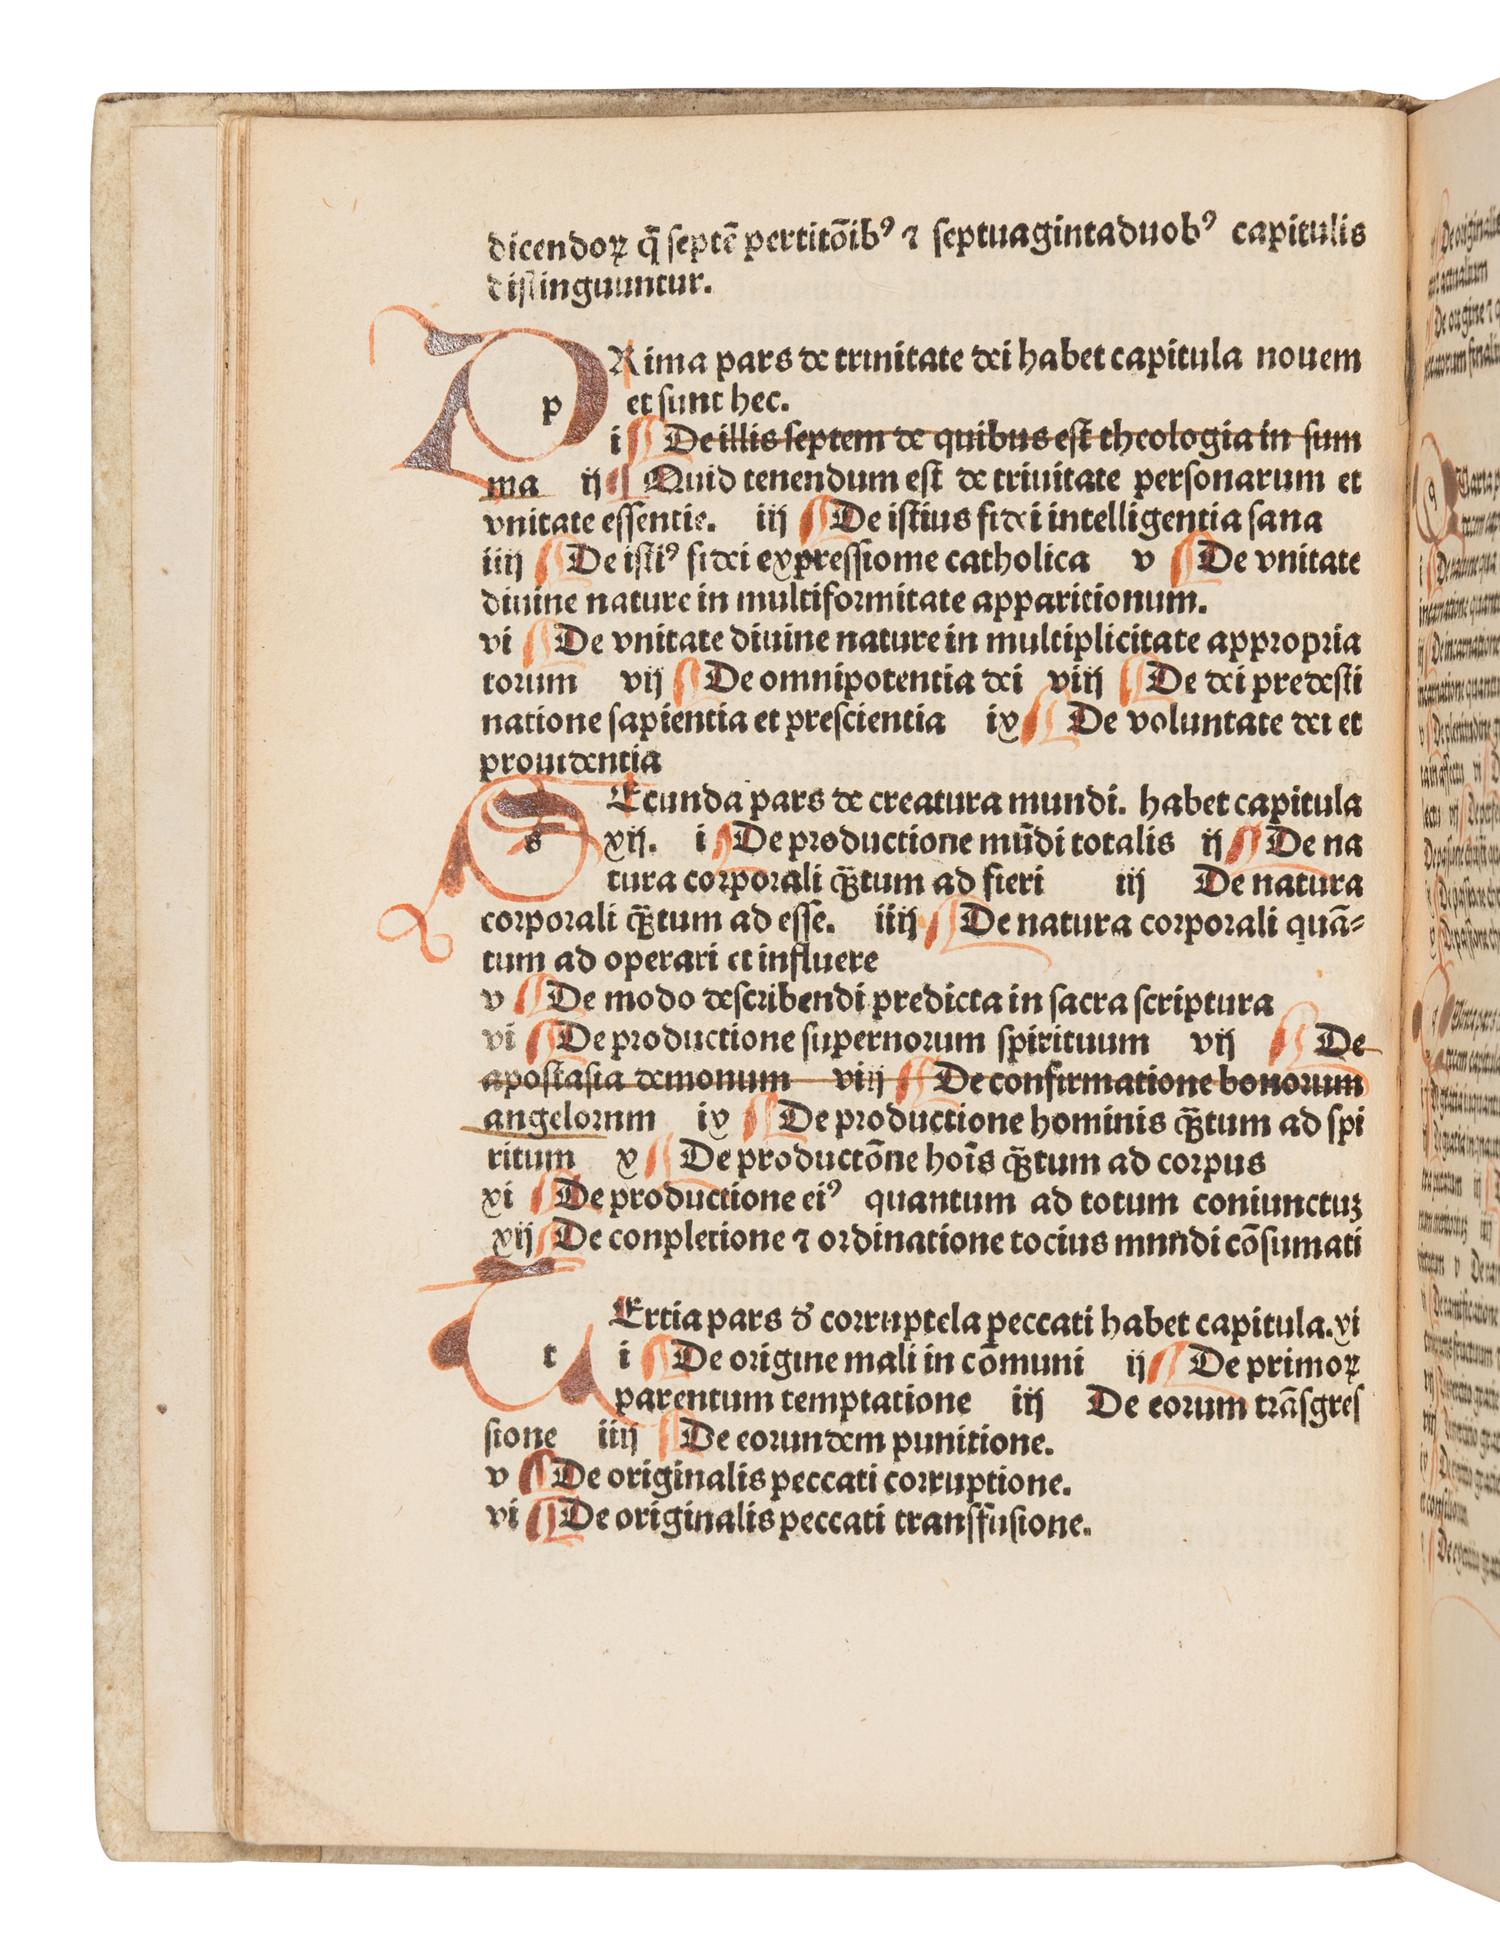 dicendoꝝ q̃ septẽ pertitõibꝰ ⁊ septuagintaduobꝰ capitulis
distinguuntur.
p Rima pars de trinitate dei habet capitula nouem
et sunt hec.
i ¶ De illis septem de quibus est theologia in sum
ma ij ¶ Quid tenendum est de triuitate personarum et
vnitate essentie. iij ¶ De istius fidei intelligentia sana
iiij ¶ De istiꝰ fidei expressiome catholica v ¶ De vnitate
diuine nature in multiformitate apparitionum.
vi ¶ De vnitate diuine nature in multiplicitate appropria
torum vij ¶ De omnipotentia dei viij ¶ De dei predesti
natione sapientia et prescientia ix ¶ De voluntate dei et
prouidentia
s Ecunda pars de creatura mundi. habet capitula
xij. i ¶ De productione mũdi totalis ij ¶ De na
tura corporali q̃tum ad fieri iij De natura
corporali q̃tum ad esse. iiij ¶ De natura corporali quã⸗
tum ad operari et influere
v ¶ De modo describendi predicta in sacra scriptura
vi ¶ De productione supernorum spirituum vij ¶ De
apostasia demonum viij ¶ De confirmatione bonorum
angelornm ix ¶ De productione hominis q̃tum ad spi
ritum x ¶ De productõne hoĩs q̃tum ad corpus
xi ¶ De productione eiꝰ quantum ad totum coniunctuʒ
xij ¶ De conpletione ⁊ ordinatione tocius mnndi cõsumati
t Ertia pars đ corruptela peccati habet capitula. xi
i ¶ De origine mali in cõmuni ij ¶ De primoꝝ
parentum temptatione iij De eorum trãsgres
sione iiij ¶ De eorundem punitione.
v ¶ De originalis peccati corruptione.
vi ¶ De originalis peccati transfusione.